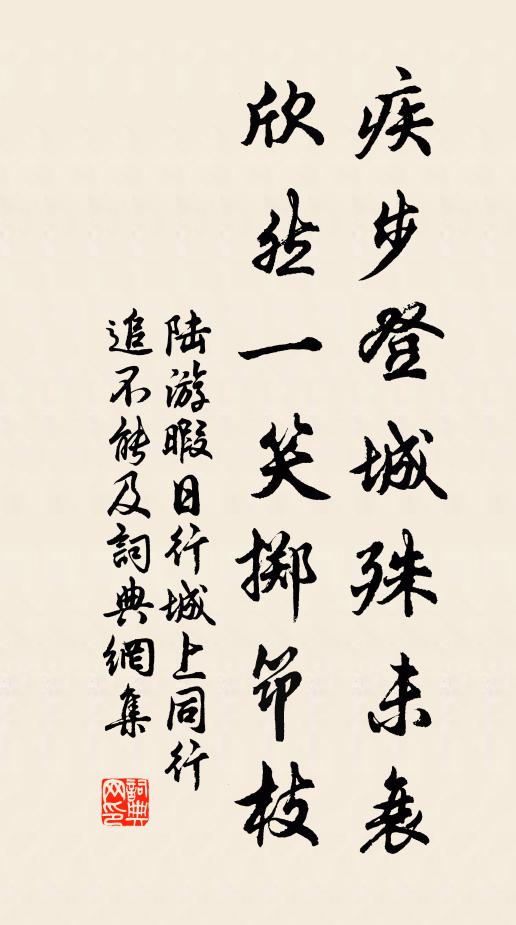 疾步登城殊未衰
欣然一笑掷筇枝
陆游暇日行城上同行
追不能及詞典網集
詞典
网印